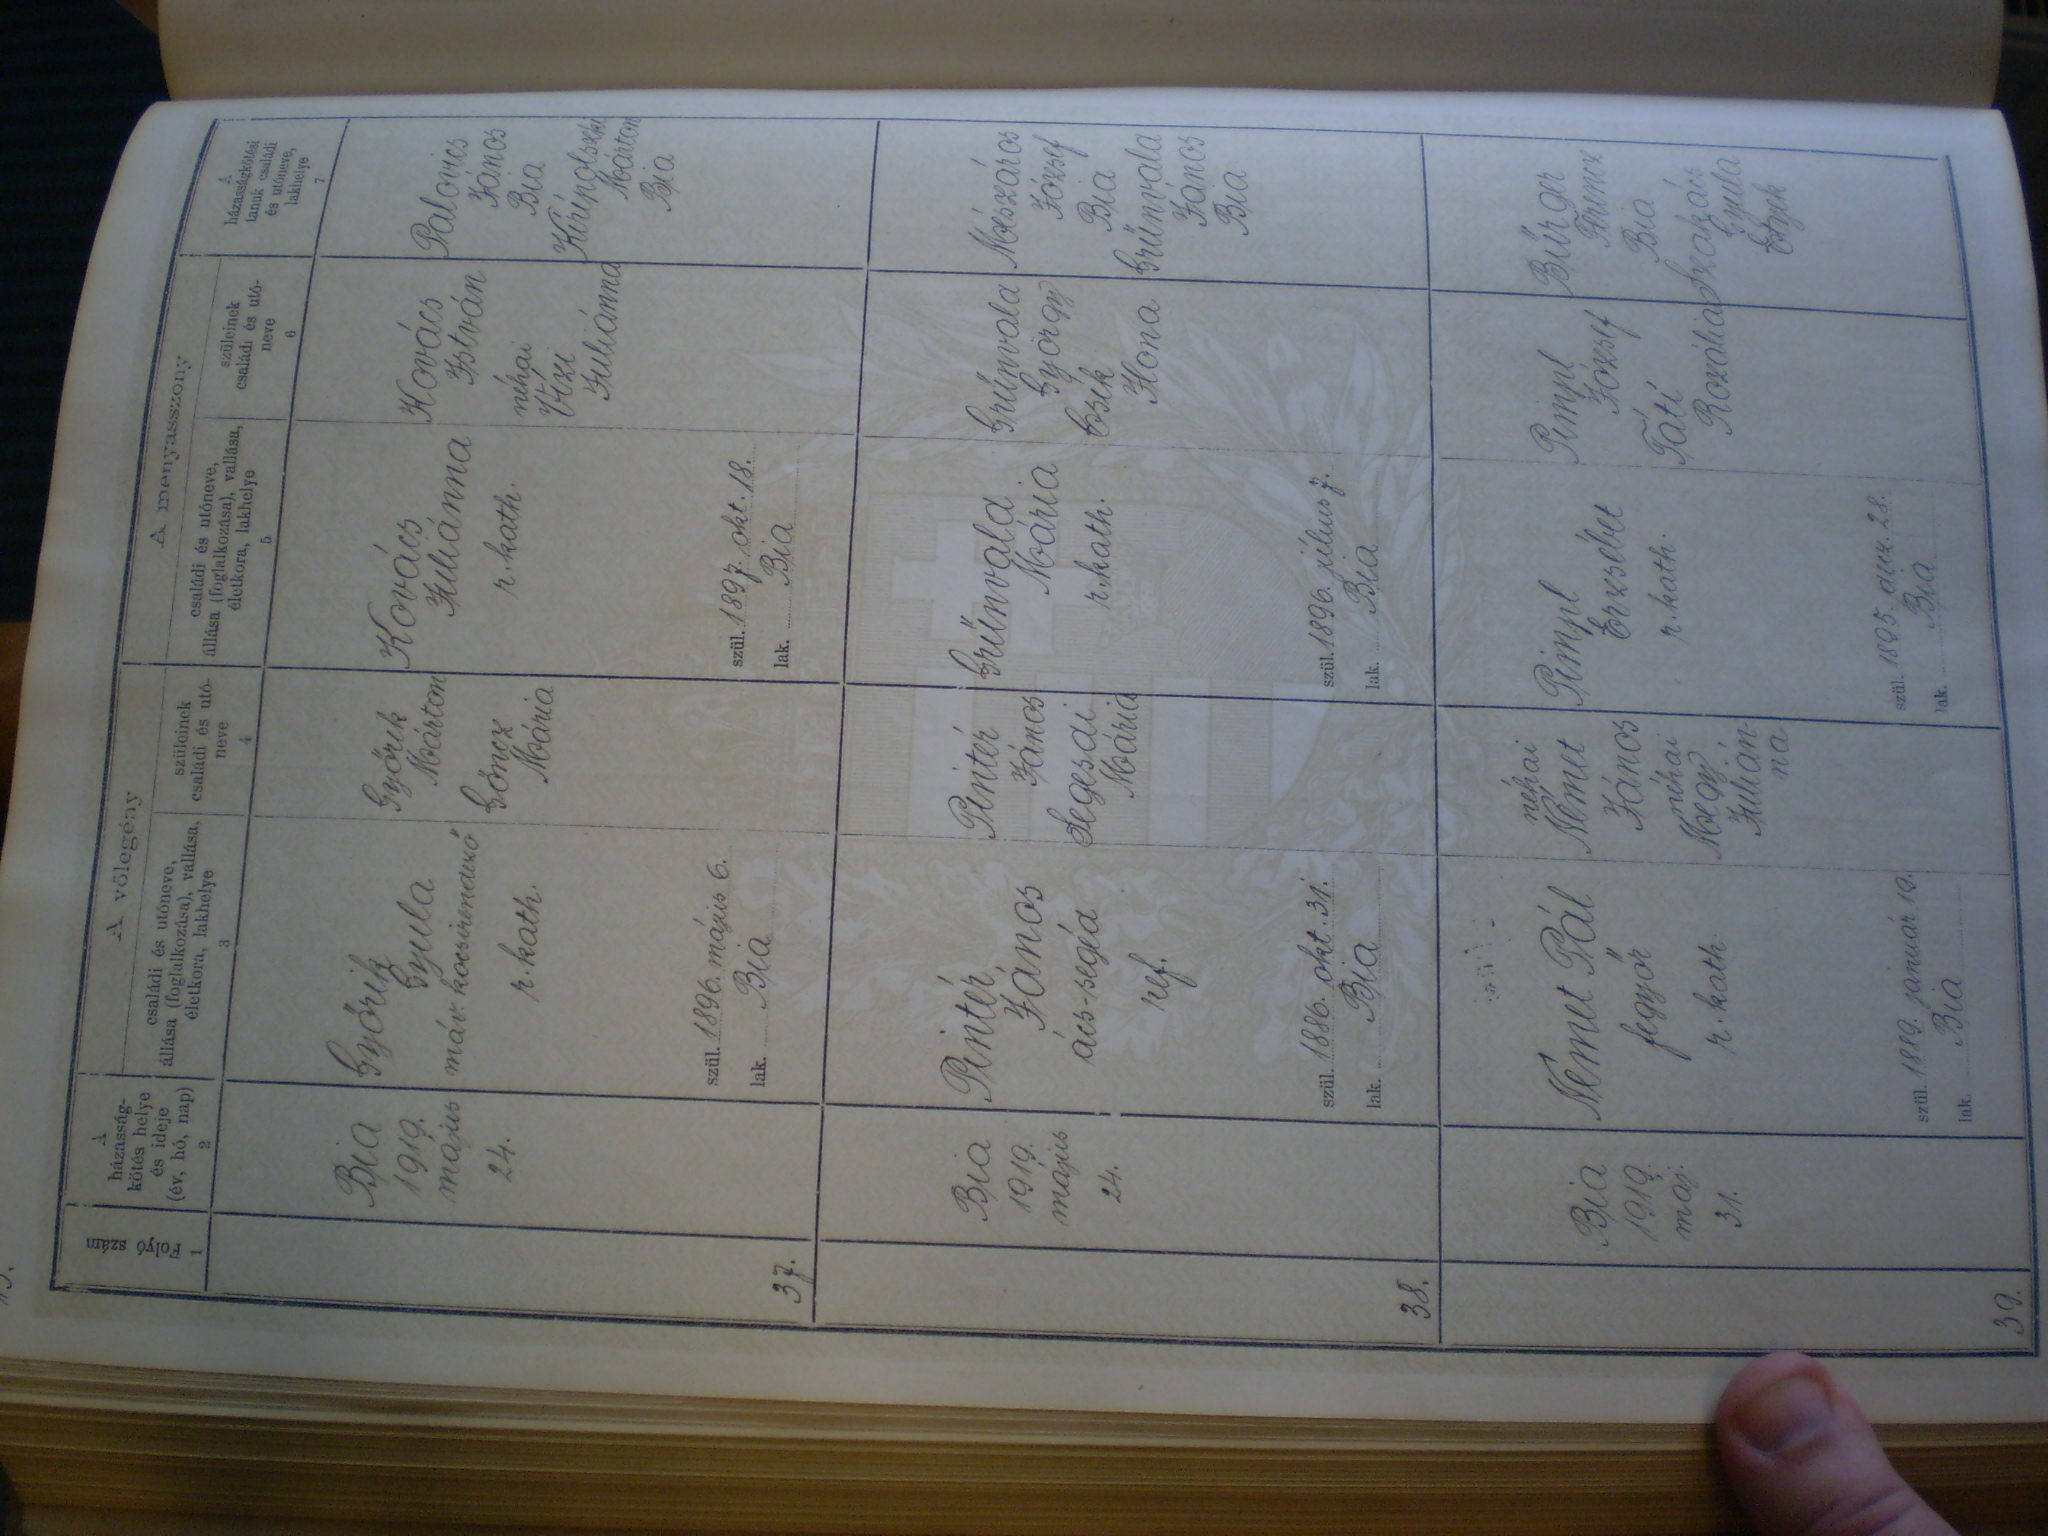 A vőlegény
A menyasszony
Folyó szám
1
A
házasság-
kötés helye
és ideje
(év, hó, nap)
2
családi és utóneve,
állása (foglalkozása), vallása,
életkora, lakhelye
3
szüleinek
családi és utó-
neve
4
családi és utóneve,
állása (foglalkozása), vallása,
életkora, lakhelye
5
szüleinek
családi és utó-
neve
6
A
házasságkötési
tanuk családi
és utóneve,
lakhelye
7
37.
Bia
1919.
május
24.
Győrik
Gyula
máv. kocsirendező
r. kath.
szül. 1896. május 6.
lak. Bia
Győrik
Márton
Göncz
Mária
Kovács
Juliánna
r. kath.
szül. 1897. okt. 18.
lak. Bia
Kovács
István
néhai
Vézi
Juliánna
Palovics
János
Bia
Márton
Bia
38.
Bia
1919.
május
24.
Pintér
János
ács-segéd
ref.
szül. 1886. okt. 31.
lak. Bia
Pintér
János
Segesdi
Mária
Grünvald
Mária
r. kath.
szül. 1896. július 7.
lak. Bia
Grünvald
György
Csék
Ilona
Mészáros
József
Bia
Grünvald
János
Bia
39.
Bia
1919.
máj.
31.
Német Pál
fegyőr
r. kath.
szül. 1889. január 19.
lak. Bia
néhai
Német
János
néhai
Megy
Julián-
na
Pimpl
Erzsébet
r. kath.
szül. 1895. decz. 28.
lak. Bia
Pimpl
József
Táti
Rozália
Bürger
Ferencz
Bia
Szakács
Gyula
Etyek